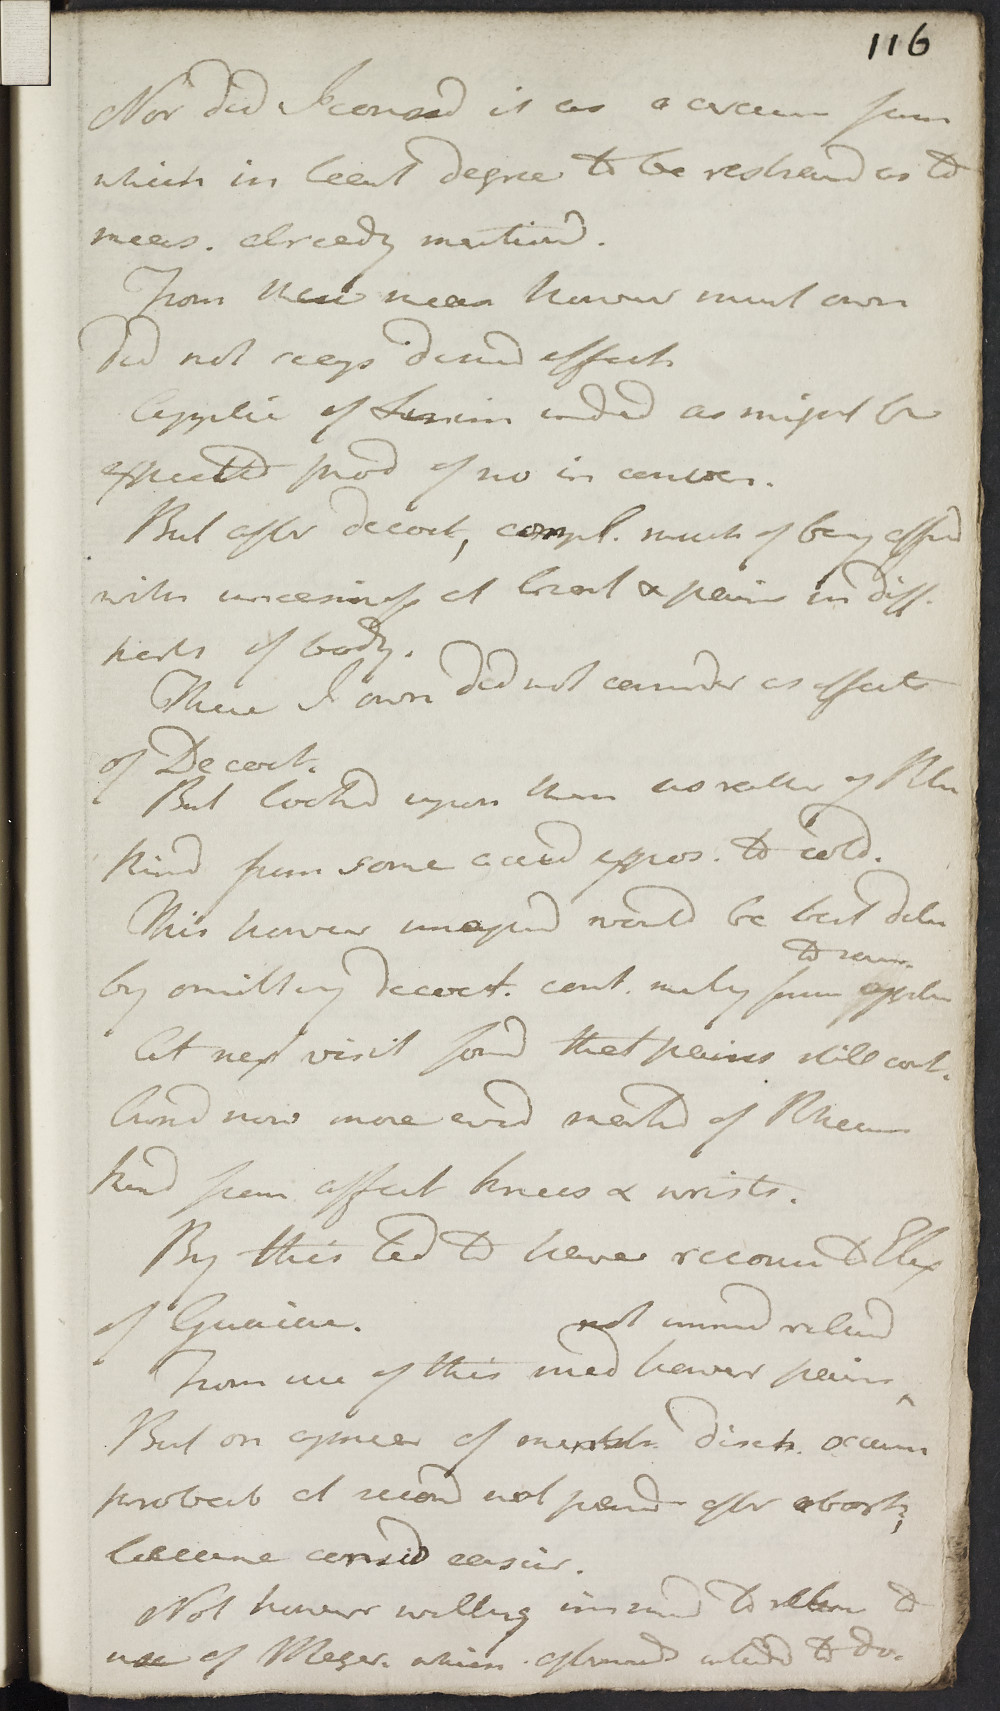 116
Nor did I consd it as a circum from
which in least degree to be restraind as to
meas. already mentiond.
From these meas however must own
did not reap desired effects
Applic of Linim indeed as might be
expected prod of no inconven.
But after decoct, compl. much of being affd
with uneasiness at breast & pains in diff.
parts of body.
These I own did not consider as effects
of Decoct.
But looked upon them as rather of Rheu
kind from some accid expos. to cold.
This however imagind would be best deter
by omitting decoct. cont. merely same applic
to
At next visit found that pains still cont.
And now more evid markd of Rheum
kind from affect knees & wrists.
By this led to have recourse to Elix
of Guaiac.
not immed relievd
From use of this med however pains ‸
But on appear of menstr. disch. occurr
probab at second not period after abort,
became consid easier.
Not however willing immed to return to
use of Mezer. which afterwards intend to do.